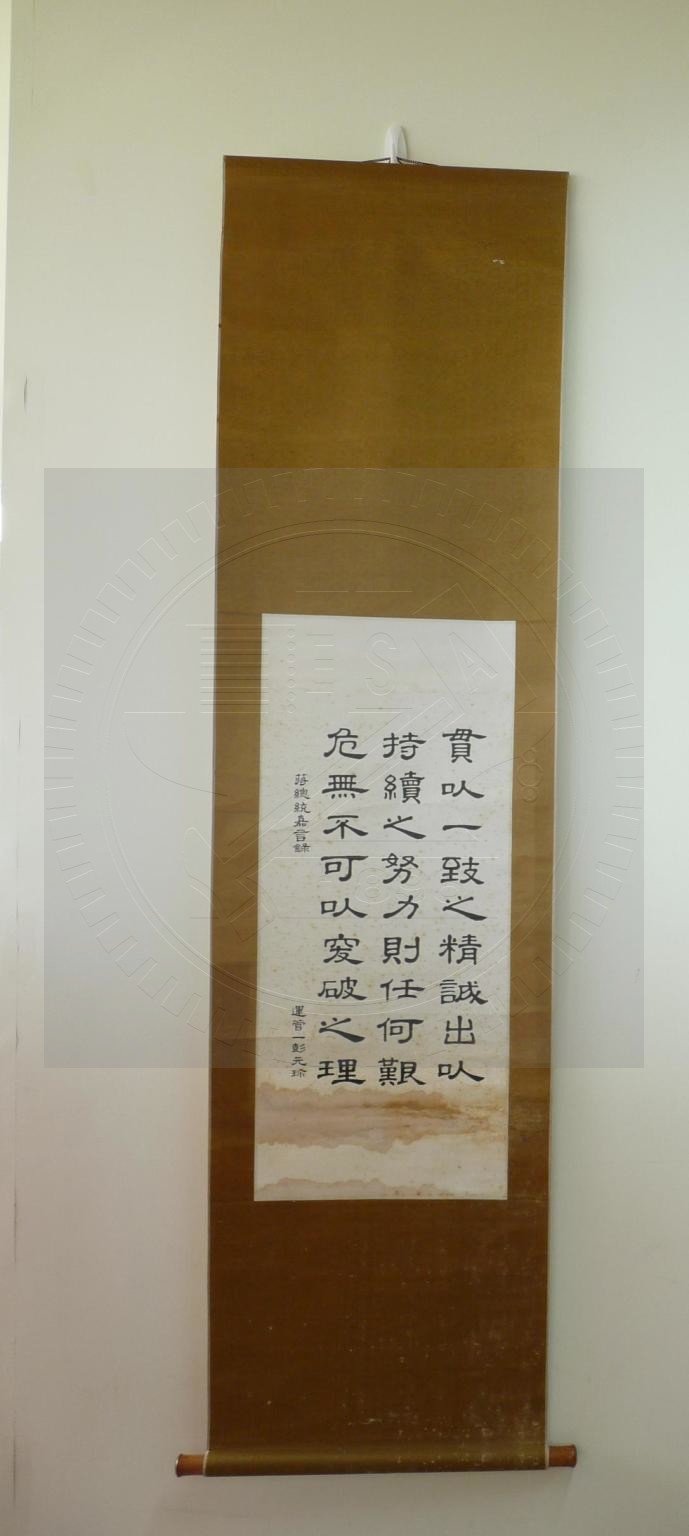 貫以一致之精誠出以
持續之努力則任何艱
危無不可以突破之理
蔣總統嘉言錄
運管一彭元琮